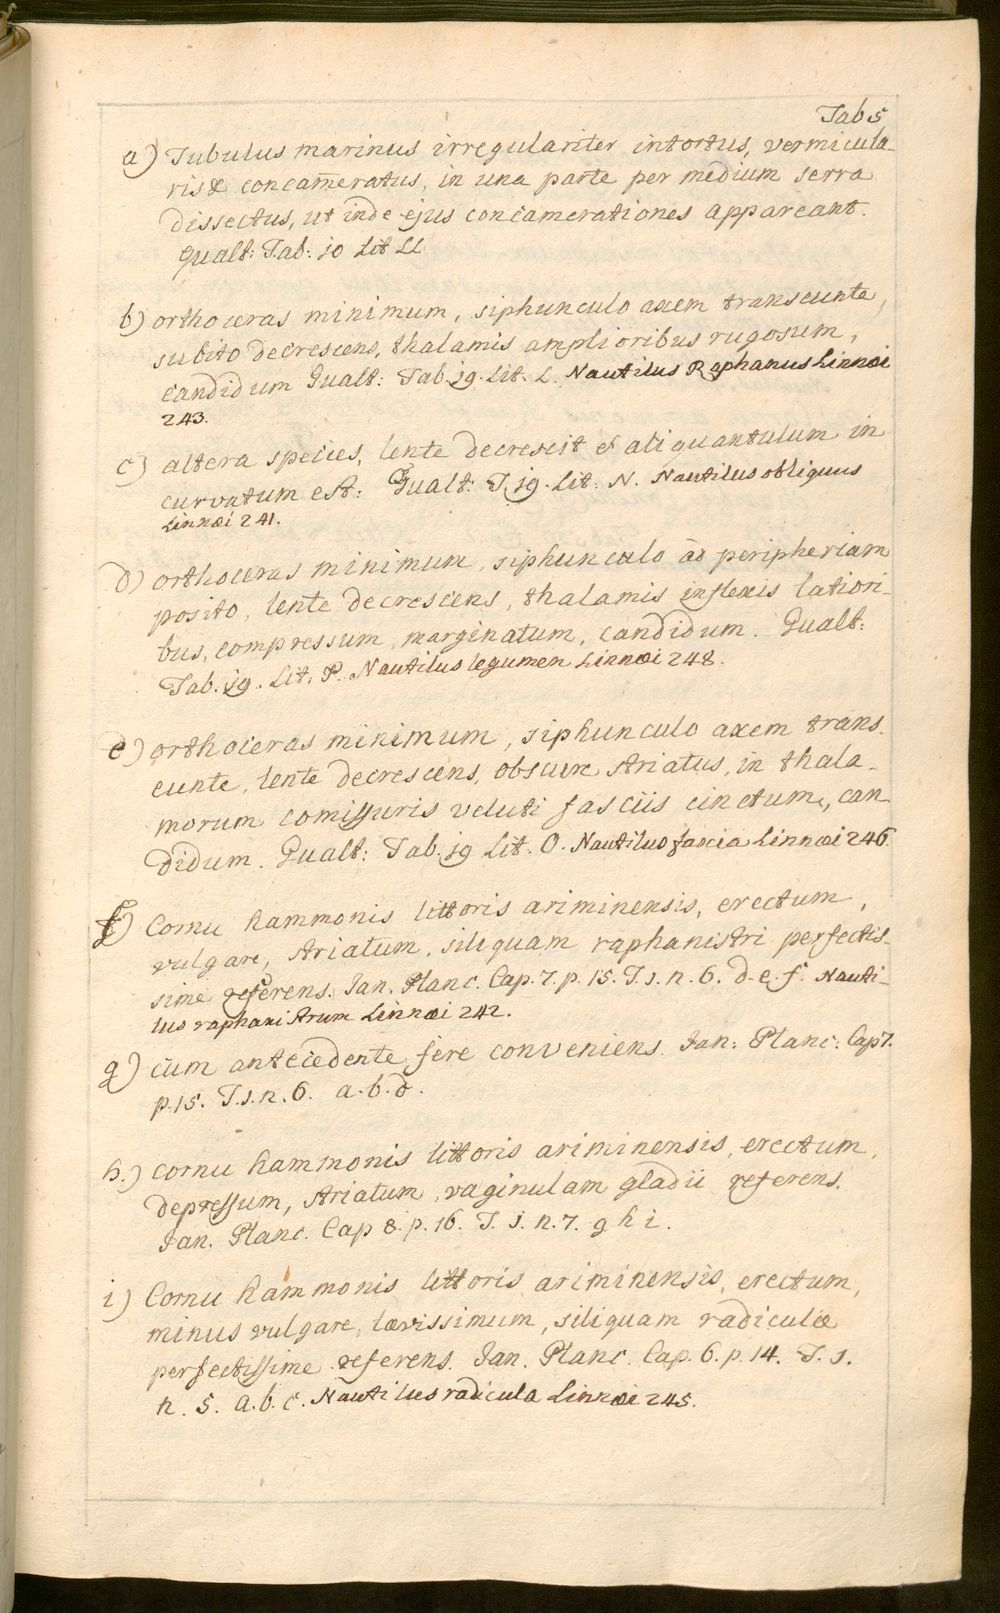 Tab 5
a) Tubulus marinus irregulariter intortus, vermicula-
ris & concam̄eratus, in una parte per medium serra
dissectus, ut inde ejus concamerationes appareant.
Gualt: Tab: 10 Lit LL
b) orthoceras minimum, siphunculo axem transeunte,
subito decrescens, thalamis amplioribus rugosum,
candidum Gualt: Tab. 19. Lit. L. Nautilus Raphanus Linnæi
243.
c) altera species, lente decrescit & aliquantulum in
curvatum est: Gualt: T. 19. Lit: N. Nautilus obliquus
Linnæi 241.
d) orthoceras minimum, siphunculo ad peripheriam
posito, lente decrescens, thalamis inflexis latiori-
bus, compressum, marginatum, candidum. Gualt:
Tab. 19. Lit. P. Nautilus legumen Linnæi 248.
e) orthoceras minimum, siphunculo axem trans-
eunte, lente decrescens, obscure striatus, in thala-
morum comissuris veluti fasciis cinctum, can-
didum. Gualt: Tab. 19 Lit. O. Nautilus fascia Linnæi 246.
f) Cornu hammonis littoris ariminensis, erectum,
vulgare, striatum, siliquam raphanistri perfectis-
sime referens. Jan. Planc. Cap. 7. p. 15. T. 1. n. 6. d. e. f. Nauti-
lus raphanistrum Linnæi 242.
g) cum antecedente fere conveniens. Jan: Planc: Cap 7.
p. 15. T. 1. n. 6. a. b. d.
h.) cornu hammonis littoris ariminensis, erectum,
depressum, striatum, vaginulam gladii referens.
Jan. Planc. Cap 8. p. 16. T. 1. n. 7. g h i.
i) Cornu hammonis littoris ariminensis, erectum,
minus vulgare, lævissimum, siliquam radiculæ
perfectissime referens. Jan. Planc. Cap. 6. p. 14. T. 1.
n. 5. a. b. c. Nautilus radicula Linnæi 245.